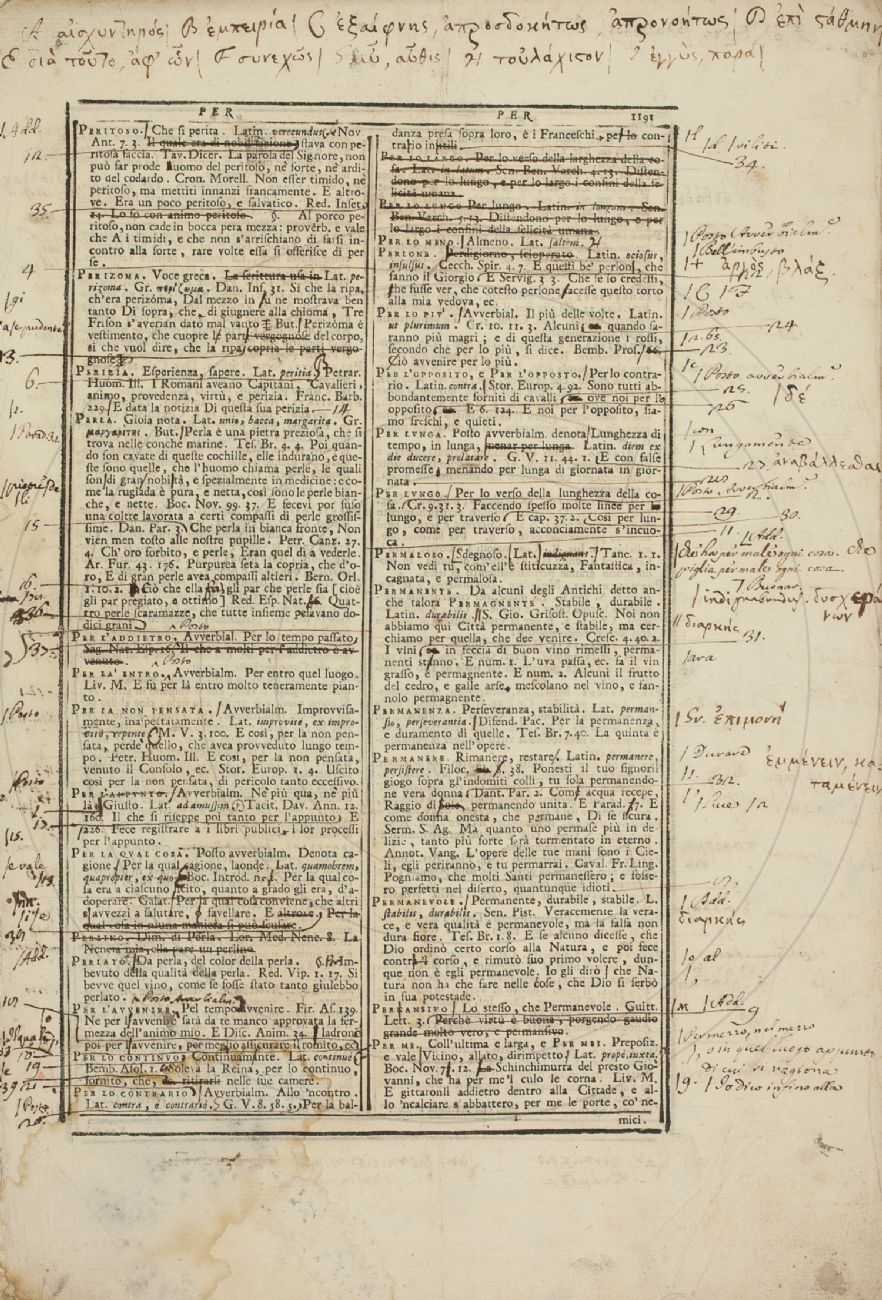 A αἰσχυντηρός| B ἐμπειρία| C ἐξαίφνης, ἀπροσδοκήτως, ἀπρονοήτως| D ἐπὶ στάθμην
E διὰ τοῦτο, ἀφ' ὧν| F συνεχῶς| αὖ, αὖθις| H τοὐλάχιστον| I ἐγγὺς, παρα|
PER
PER 1191
PERITOSO. Che si perita. Latin. verecundus, Nov.
Ant. 7. 3. Il quale era di nobil stava con pe-
ritosa faccia. Tav. Dicer. La parola del Signore, non
può far prode huomo del peritoso, nè forte, nè ardi-
to del codardo. Cron. Morell. Non esser timido, nè
peritoso, ma mettiti innanzi francamente. E altro-
ve. Era un poco peritoso, e salvatico. Red. Inset.
24. Io fo con animo peritoso. §. Al porco pe-
ritoso, non cade in bocca pera mezza: proverb. e vale
che A i timidi, e che non s'arrischiano di farsi in-
contro alla sorte, rare volte essa si offerisce di per
se.
PERIZOMA. Voce greca. La scrittura usa in Lat. pe-
rizoma. Gr. περίζωμα. Dan. Inf. 31. Sì che la ripa,
ch'era perizóma, Dal mezzo in su ne mostrava ben
tanto Di sopra, che di giugnere alla chioma, Tre
Frison s'averian dato mal vanto But. Perizóma è
vestimento, che cuopre le parti vergognose del corpo,
sì che vuol dire, che la ripa copria le parti vergo-
gnose
PERIZIA. Esperienza, sapere. Lat. peritia. Petrar.
Huom. Ill. I Romani aveano Capitani, Cavalieri,
animo, provedenza, virtù, e perizia. Franc. Barb.
229. E data la notizia Di questa sua perizia 14
PERLA. Gioia nota. Lat. unio, bacca, margarita. Gr.
μαργαρίτης. But. Perla è una pietra preziosa, che si
trova nelle conche marine. Tes. Br. 4. 4. Poi quan-
do son cavate di queste cochille, elle indurano, e que-
ste sono quelle, che l'huomo chiama perle, le quali
son di gran nobiltà, e spezialmente in medicine: e co-
me la rugiada è pura, e netta, così sono le perle bian-
che, e nette. Boc. Nov. 99. 37. E fecevi por suso
una coltre lavorata a certi compassi di perle grossis-
sime. Dan. Par. 3. Che perla in bianca fronte, Non
vien men tosto alle nostre pupille. Petr. Canz. 27.
4. Ch' oro forbito, e perle, Eran quel dì a vederle.
Ar. Fur. 43. 176. Purpurea seta la copria, che d'o-
ro, E di gran perle avea compassi altieri. Bern. Orl.
1. 10. 2. Ciò che ella fa gli par che perle sia [cioè
gli par pregiato, e ottimo] Red. Esp. Nat. Quat-
tro perle scaramazze, che tutte insieme pelavano do-
dici grani Posto
PER L'ADDIETRO. Avverbial. Per lo tempo passato.
Sag. Nat. Esp. 16. Il che a molti per l'addietro è av-
venuto. Posto
PER LA' ENTRO. Avverbialm. Per entro quel luogo.
Liv. M. E su per là entro molto teneramente pian-
to.
PER LA NON PENSATA. Avverbialm. Improvvisa-
mente, inaspettatamente. Lat. improvise, ex impro-
viso, repente. M. V. 3. 100. E così, per la non pen-
sata, perdè quello, che avea provveduto lungo tem-
po. Petr. Huom. Ill. E così, per la non pensata,
venuto il Consolo, ec. Stor. Europ. 1. 4. Uscito
così per la non pensata, di pericolo tanto eccessivo.
PER L'APPUNTO. Avverbialm. Nè più qua, nè più
là. Giusto. Lat. ad amussim. Tacit. Dav. Ann. 12.
160. Il che si riseppe poi tanto per l'appunto E
226. Fece registrare a i libri publici, i lor processi
per l'appunto.
PER LA QUAL COSA. Posto avverbialm. Denota ca-
gione. Per la qual cagione, laonde. Lat. quamobrem,
quapropter, ex quo. Boc. Introd. n. Per la qual co-
sa era a ciascuno lecito, quanto a grado gli era, d'a-
doperare. Galat. Per la qual cosa conviene, che altri
s'avvezzi a salutare, e favellare. E altrove. Per la
qual cosa in niuna maniera si può scusare.
PERLINO. Dim. di Perla. Lor. Med. Nenc. 8. La
Nencia mia, ella pare un perlino.
PERLATO. Da perla, del color della perla. §. Per Im-
bevuto della qualità della perla. Red. Vip. 1. 17. Si
bevve quel vino, come se fosse stato tanto giulebbo
perlato. Posto Avverbialm.
PER L'AVVENIRE. Pel tempo avvenire. Fir. As. 139.
Nè per l'avvenire sarà da te manco approvata la fer-
mezza dell'animo mio. E Disc. Anim. 34. ladrone
poi per l'avvenire, per meglio assicurare il romito, ec.
PER LO CONTINUO. Continuamente. Lat. continue.
Bemb. Asol. 1. Soleva la Reina, per lo continuo,
fornito, che, ritirarsi nelle sue camere.
PER LO CONTRARIO. Avverbialm. Allo 'ncontro.
Lat. contra, e contrario. G. V. 8. 58. 5. Per la bal-
danza presa sopra loro, è i Franceschi, per lo con-
trario invilíti.
PER LO LARGO. Per lo verso della larghezza della co-
sa. Lat. in latum. Sen. Ben. Varch. 4. 13. Disten-
dono per lo lungo, e per lo largo i confini della fe-
licità umana.
PER LO LUNGO Per lungo. Latin. in longum. Sen.
Ben. Varch. 4. 13. Distendono per lo lungo, e per
lo largo i confini della felicità umana.
PER LO MENO. Almeno. Lat. saltem. H
PERLONE. Perdigiorno, scioperato. Latin. ociosus,
insulsus. Cecch. Spir. 4. 7. E questi be' perloni, che
fanno il Giorgio E Servig. 3. 3. Che se io credessi,
che fusse ver, che cotesto perlone facesse questo torto
alla mia vedova, ec.
PER LO PIU'. Avverbial. Il più delle volte. Latin.
ut plurimum. Cr. 10. 11. 3. Alcuni quando sa-
ranno più magri; e di questa generazione i rossi,
secondo che per lo più, si dice. Bemb. Pros. 66.
Ciò avvenire per lo più.
PER L'OPPOSITO, E PER L'OPPOSTO. Per lo contra-
rio. Latin. contra. Stor. Europ. 4. 92. Sono tutti ab-
bondantemente forniti di cavalli ove noi per lo
opposito E 6. 124. E noi per l'opposito, sia-
mo freschi, e quieti.
PER LUNGA. Posto avverbialm. denota Lunghezza di
tempo, in lunga, menar per lunga. Latin. diem ex
die ducere, prolatare. G. V. 11. 44. 1. E con false
promesse, menando per lunga di giornata in gior-
nata
PER LUNGO. Per lo verso della lunghezza della co-
sa. Cr. 9. 31. 3. Faccendo spesso molte linee per lo
lungo, e per traverso E cap. 37. 2. Così per lun-
go, come per traverso, acconciamente s'incuo-
ca.
PERMALOSO. Sdegnoso. Lat. indignans. Tanc. 1. 1.
Non vedi tu, com'ell'è stiticuzza, Fantastica, in-
cagnata, e permalosa.
PERMANENTE. Da alcuni degli Antichi detto an-
che talora PERMAGNENTE. Stabile, durabile.
Latin. durabilis. S. Gio. Grisost. Opusc. Noi non
abbiamo qui Città permanente, e stabile, ma cer-
chiamo per quella, che dee venire. Cresc. 4. 40. 2.
I vini in feccia di buon vino rimessi, perma-
nenti stanno. E num. 1. L'uva passa, ec. fa il vin
grasso, e permagnente. E num. 2. Alcuni il frutto
del cedro, e galle arse, mescolano nel vino, e fan-
nolo permagnente.
PERMANENZA. Perseveranza, stabilità. Lat. perman-
sio, perseverantia. Difend. Pac. Per la permanenza,
e duramento di quelle. Tes. Br. 7. 40. La quinta è
permanenza nell'opere.
PERMANERE. Rimanere, restare. Latin. permanere,
persistere. Filoc. 8. 38. Ponesti il tuo signoril
giogo sopra gl'indomiti colli, tu sola permanendo-
ne vera donna. Dant. Par. 2. Com' acqua recepe,
Raggio di permanendo unita. E Parad. 7. E
come donna onesta, che permane, Di se sicura.
Serm. S. Ag. Ma quanto uno permase più in de-
lizie, tanto più forte sarà tormentato in eterno.
Annot. Vang. L'opere delle tue mani sono i Cie-
li, egli periranno, e tu permarrai. Caval. Fr. Ling.
Pognamo, che molti Santi permanessero; e fosse-
ro perfetti nel diserto, quantunque idioti.
PERMANEVOLE. Permanente, durabile, stabile. L.
stabilis, durabilis. Sen. Pist. Veracemente la vera-
ce, e vera qualità è permanevole, ma la falsa non
dura fiore. Tes. Br. 1. 8. E se alcuno dicesse, che
Dio ordinò certo corso alla Natura, e poi fece
contra'l corso, e rimutò suo primo volere, dun-
que non è egli permanevole. Io gli dirò che Na-
tura non ha che fare nelle cose, che Dio si serbò
in sua potestade.
PERMANSIVO. Lo stesso, che Permanevole. Guitt.
Lett. 3. Perchè virtù è buona, porgendo gaudio
grande molto vero, e permansivo.
PER ME. Coll'ultima e larga, e PER MEI. Preposiz.
e vale Vicino, allato, dirimpetto. Lat. prope, juxta.
Boc. Nov. 7. 12. La Schinchimurra del presto Gio-
vanni, che ha per me'l culo le corna. Liv. M.
E gittaronli addietro dentro alla Cittade, e al-
lo 'ncalciare s'abbattero, per me le porte, co' ne-
mici.
34.
ἀργὸς, βλάξ
24
23
25.
26
δέ
27. ἀναβάλλεσθαι
29 30.
che ha per male ogni cosa. che
piglia per male ogni cosa.
indignabundus. δυσχεραίνων
διαρκής 31.
ἐπιμονή
ἐμμένειν, κα-
ταμένειν
32.
διαρκής
12
35
4
6
15